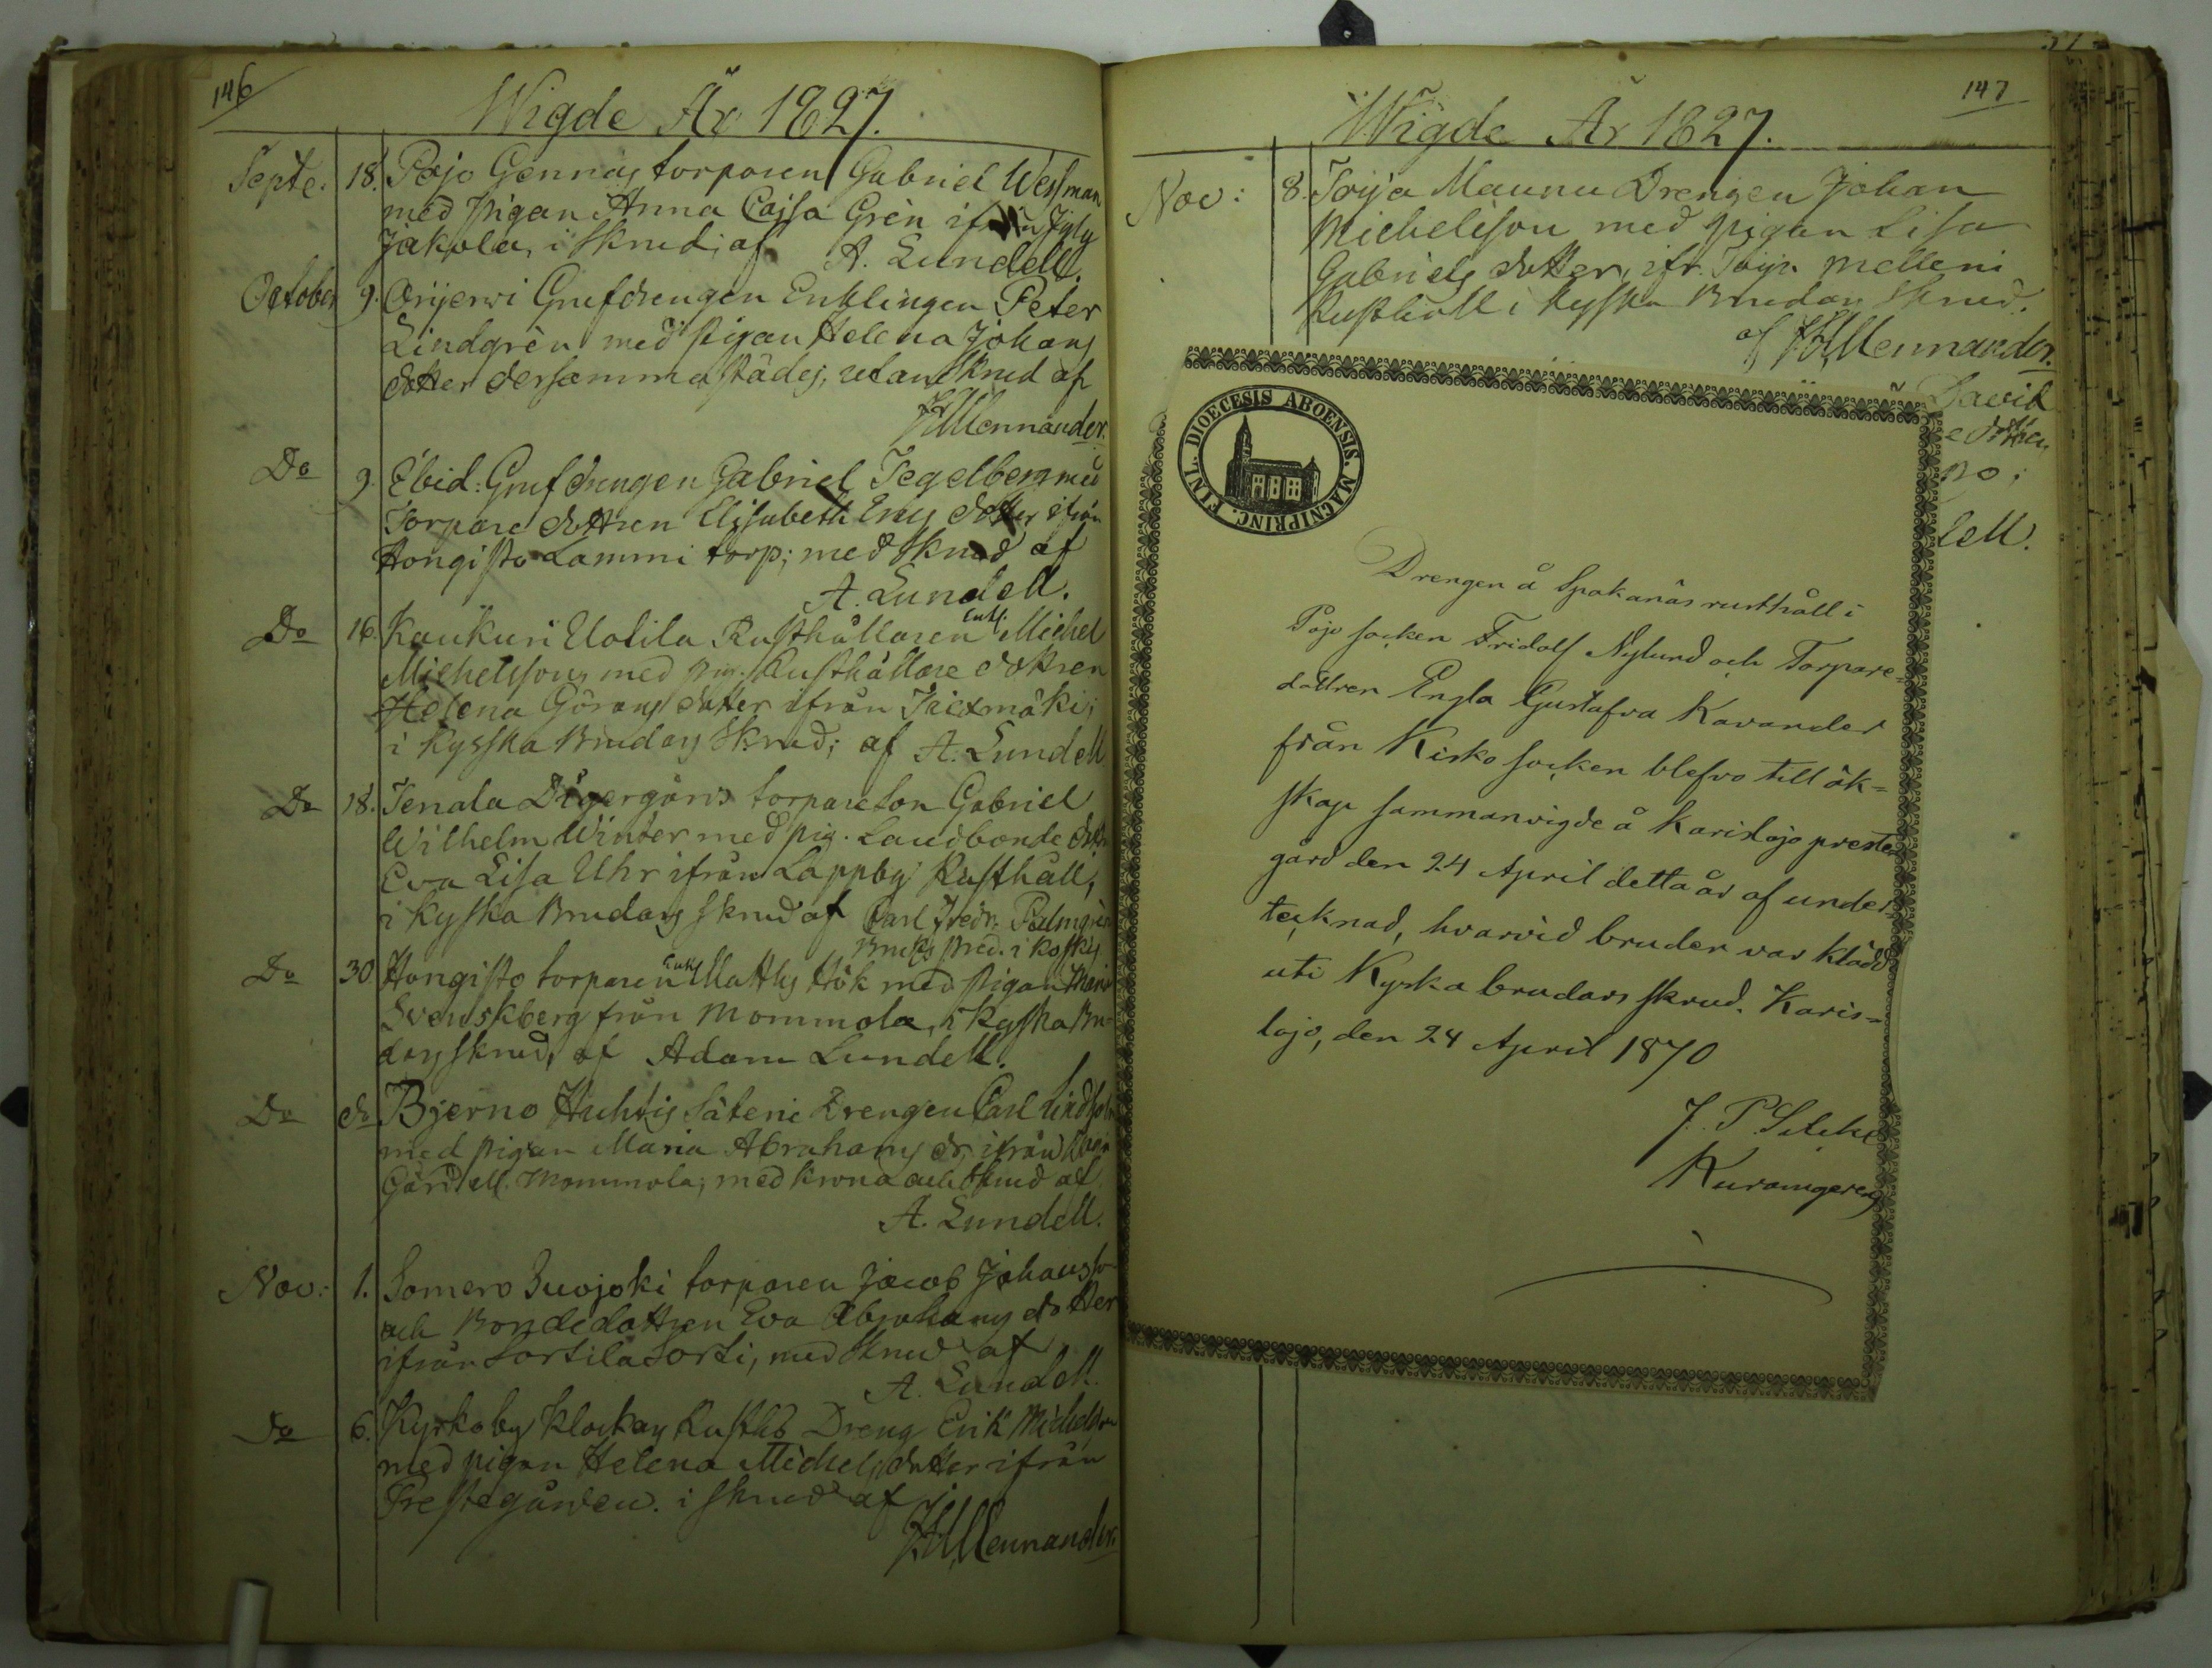 146
Wigde År 1827.
Septe. 18. Pojo Gennäs torparen Gabriel Wessman
med pigan Anna Cajsa Grén ifrån
Jakola, i skrud; af A. Lundell.
October 9. Orijerwi Grufdrengen Enklingen Peter
Lindgrén med pigan Helena Johans
dotter dersammastädes, utan skrud af
Mennander.
Do 9. Ebid: Grufdrengen Gabriel Tegelberg med
Torpare dottren Elisabeth Erics dotter ifrån
Hongisto Lammi torp; med skrud af
A. Lundell.
Do 16. Kaukuri Uotila Rusthållaren Enkl. Michel
Michelsson med pig. Rusthållare dottren
Helena Görans dotter ifrån
i Kyrska Brudars skrud; af A. Lundell
Do 18. Tenala torpareson Gabriel
Wilhelm Winter med pig. Landbonde dottr
Eva Lisa Uhr ifrån Lappby Rusthåll,
i Kyrska Brudars skrud af Carl Fredr. Palmgrén
Bruks Pred. i Koskis
Do 30 Hongisto torparen Enkl Matths Hök med pigan Maria
Svenskberg från Mommola, i Kyrska Bru-
dars skrud, af Adam Lundell.
Do do Bjerno Huhtis Säteri Drengen Carl Lindholm
med pigan Maria Abrahams dr ifrån
Mommola; med krona och skrud af
A. Lundell.
Nov: 1. Somero torparen Jacob Johansson
och Bondedottren Eva Abrahams dotter
ifrån med skrud af
A. Lundell.
Do 6. Kyrkoby Klockars Rusths Dreng Erik Michelsson
med pigan Helena Michelsdotter ifrån
Prestegården. i skrud af
Mennander.
147
Wigde År 1827.
Nov: 8. Toija Maunu Drengen Johan
Michelsson med pigan Lisa
Gabriels dotter, ifr. Toija Melleri
Rusthåll i Kyrska Brudars skrud.
af Mennander.
David
no;
lell.
FINL. DIOECESIS ABOENSIS. MAGNIPRINC.
Drengen å Spakanäs rusthåll i
Pojo socken Fridolf Nylund och Torpare-
dottren Engla Gustafva Kavander
från Kisko socken blefvo till äk-
skap sammanvigde å Karislojo preste-
gård den 24 April detta år af under-
tecknad, hvarvid bruden var klädd
uti Kyrka brudars skrud. Karis-
lojo, den 24 April 1870
J. P.